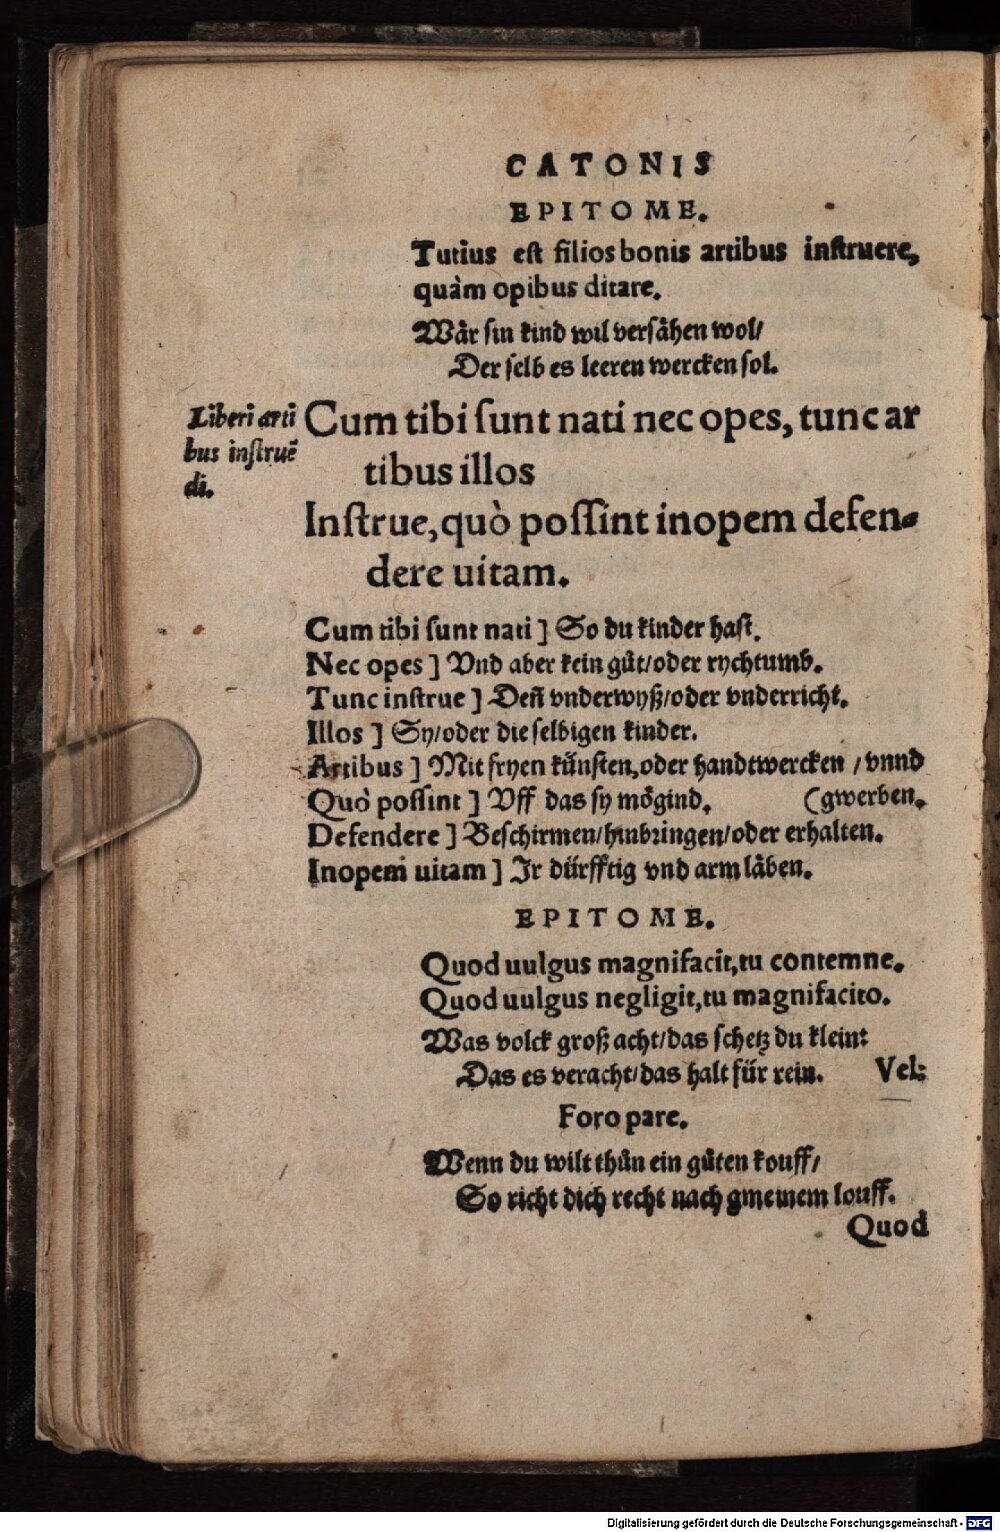 CATONIS
EPITOME.
Tutius est filios bonis artibus instruere,
quàm opibus ditare.
Wår sin kind wil versåhen wol/
Der selb es leeren wercken sol.
Liberi arti
bus instruē
di.
Cum tibi sunt nati nec opes, tunc ar
tibus illos
Instrue, quò possint inopem defen-
dere uitam.
Cum tibi sunt nati ] So du kinder hast.
Nec opes ] Vnd aber kein gůt/oder rychtumb.
Tunc instrue ] Deñ vnderwyß/oder vnderricht.
Illos ] Sy/oder die selbigen kinder.
Artibus ] Mit fryen künsten, oder handtwercken / vnnd
Quò possint ] Vff das sy mögind. (gwerben.
Defendere ] Beschirmen/hinbringen/oder erhalten.
Inopem uitam ] Ir dürfftig vnd arm låben.
EPITOME.
Quod uulgus magnifacit, tu contemne.
Quod uulgus negligit, tu magnifacito.
Was volck groß acht/das schetz du klein:
Das es veracht/das halt für rein. Vel:
Foro pare.
Wenn du wilt thůn ein gůten kouff/
So richt dich recht nach gmeinem louff.
Quod
Digitalisierung gefördert durch die Deutsche Forschungsgemeinschaft - DFG